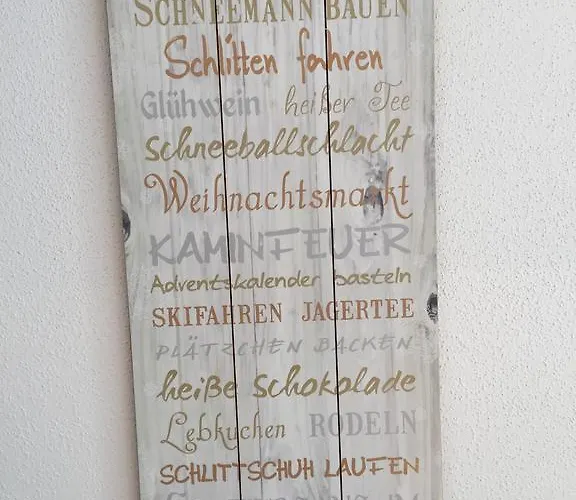 SCHNEEMANN BAUEN
Schlitten fahren
Glühwein heißer Tee
Schneeballschlacht
Weihnachtsmarkt
KAMINFEUER
Adventskalender basteln
SKIFAHREN JAGERTEE
PLÄTZCHEN BACKEN
heiße Schokolade
Lebkuchen RODELN
SCHLITTSCHUH LAUFEN